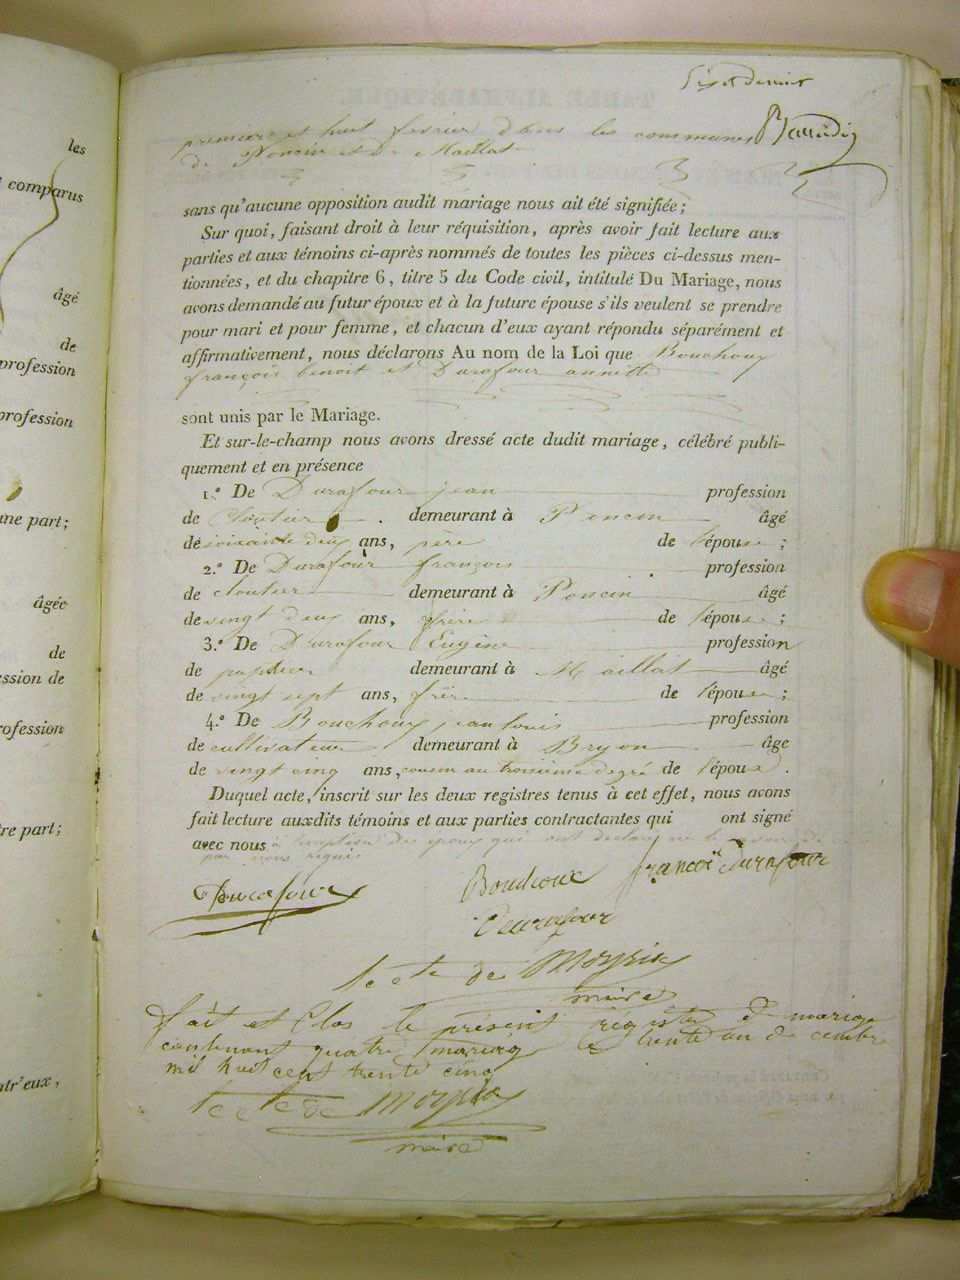 les
comparus
âgé
de
profession
profession
une part;
âgée
de
ession de
rofession
tre part;
ntr'eux,
Six et dernier
premier et huit fevrier dans les communes
de Poncin et de Maillat
sans qu'aucune opposition audit mariage nous ait été signifiée;
Sur quoi, faisant droit à leur réquisition, après avoir fait lecture aux
parties et aux témoins ci-après nommés de toutes les pièces ci-dessus men-
tionnées, et du chapitre 6, titre 5 du Code civil, intitulé Du Mariage, nous
avons demandé au futur époux et à la future épouse s'ils veulent se prendre
pour mari et pour femme, et chacun d'eux ayant répondu séparément et
affirmativement, nous déclarons Au nom de la Loi que Bouchoux
françois benoit et Durafour annette
sont unis par le Mariage.
Et sur-le-champ nous avons dressé acte dudit mariage, célébré publi-
quement et en présence
1.º De Durafour jean profession
de cloutier . demeurant à Poncin âgé
de soixante deux ans, père de l'épouse;
2.º De Durafour françois profession
de cloutier demeurant à Poncin âgé
de vingt deux ans, frère de l'épouse;
3.º De Durafour Eugène profession
de demeurant à Maillat âgé
de vingt sept ans, frère de l'épouse;
4.º De Bouchoux jean louis profession
de cultivateur demeurant à Bryon âge
de vingt cinq ans, cousin au troisième degré de l'époux.
Duquel acte, inscrit sur les deux registres tenus à cet effet, nous avons
fait lecture auxdits témoins et aux parties contractantes qui ont signé
avec nous à des epoux qui ont déclaré ne le savoir de
par nous requis
Durafour Bouchoux françois Durafour
Durafour
de Moyria
maire
fait et Clos le présent régistre de mariage
contenant quatre mariage le trente un décembre
mil huit cent trente cinq
de Moyria
maire